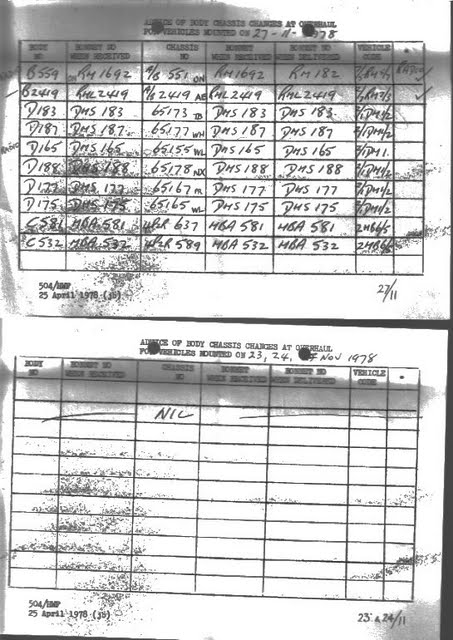 ADVICE OF BODY CHASSIS CHANGES AT OVERHAUL
FOR VEHICLES MOUNTED ON 27-11-1978
BODY NO BONNET NO WHEN RECEIVED CHASSIS NO BONNET WHEN RECEIVED BONNET WHEN DELIVERED VEHICLE CODE
B559 RM1692 551 ON RM1692 RM 182 RADIO
B2419 RML2419 2419 AE RML2419 RML2419 ✓
D183 DMS 183 65173 TB DMS 183 DMS 183
D187 DMS 187 65177 WH DMS 187 DMS 187
RADIO D165 DMS 165 65155 WL DMS 165 DMS 165
D188 DMS 188 65178 NX DMS 188 DMS 188
D177 DMS 177 65167 DMS 177 DMS 177
D175 DMS 175 65165 WL DMS 175 DMS 175
C581 MBA 581 637 MBA 581 MBA 581
C532 MBA 532 589 MBA 532 MBA 532
504/BMF
25 April 1978 (JB) 27/11
ADVICE OF BODY CHASSIS CHANGES AT OVERHAUL
FOR VEHICLES MOUNTED ON 23, 24, NOV 1978
BODY NO BONNET NO WHEN RECEIVED CHASSIS NO BONNET WHEN RECEIVED BONNET WHEN DELIVERED VEHICLE CODE
NIL
504/BMF
25 April 1978 (JB) 23 & 24/11